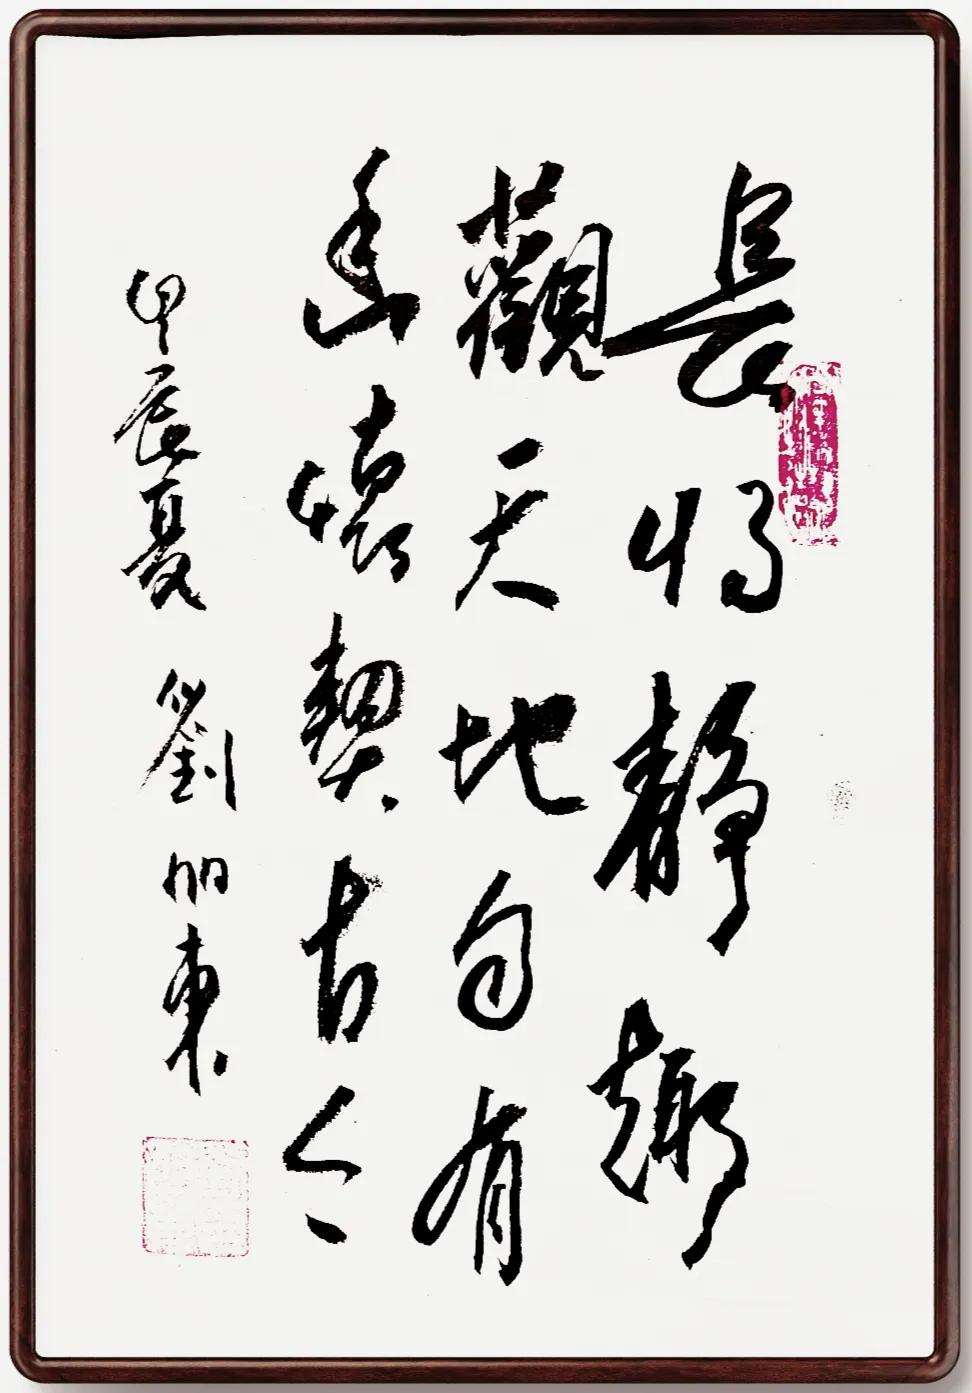 長將靜趣
觀天地自有
幽懷契古今
甲辰夏 劉旭東